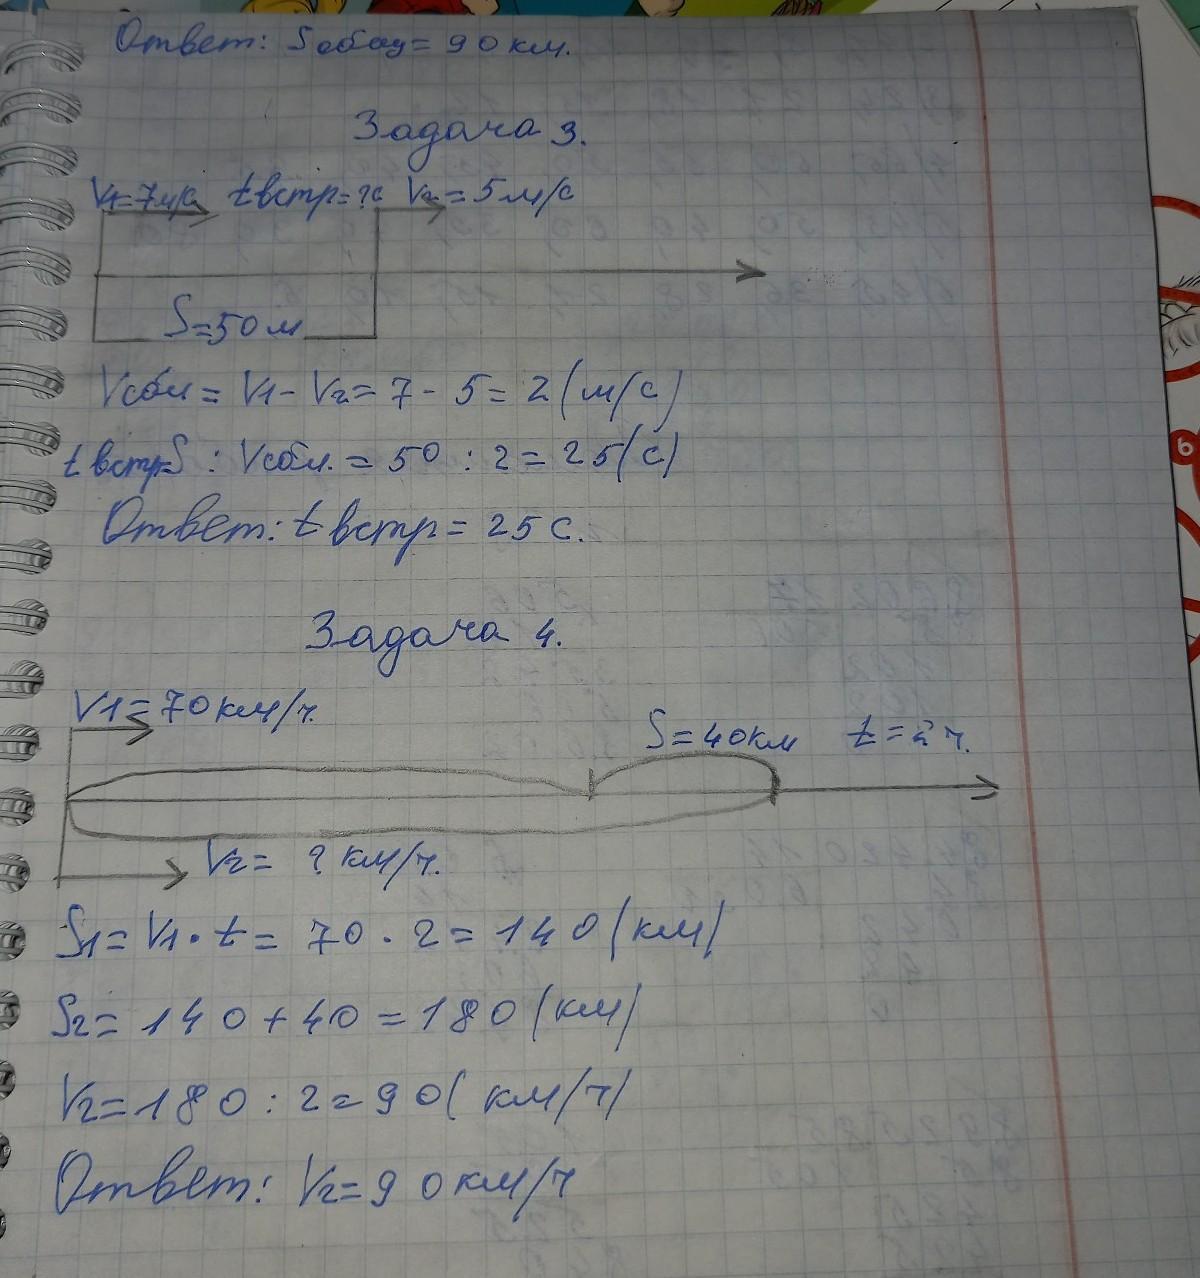 Ответ: Sобщ = 90 км.
Задача 3.
V1=7м/с tвстр=?с V2=5м/с
S=50м
Vсбл = V1 - V2 = 7 - 5 = 2 (м/с)
tвстр=S : Vсбл. = 50 : 2 = 25(с)
Ответ: tвстр = 25 с.
Задача 4.
V1=70км/ч.
S=40км t=2ч.
V2= ? км/ч.
S1= V1 · t = 70 · 2 = 140 (км)
S2= 140 + 40 = 180 (км)
V2= 180 : 2 = 90( км/ч)
Ответ: V2=90км/ч
6